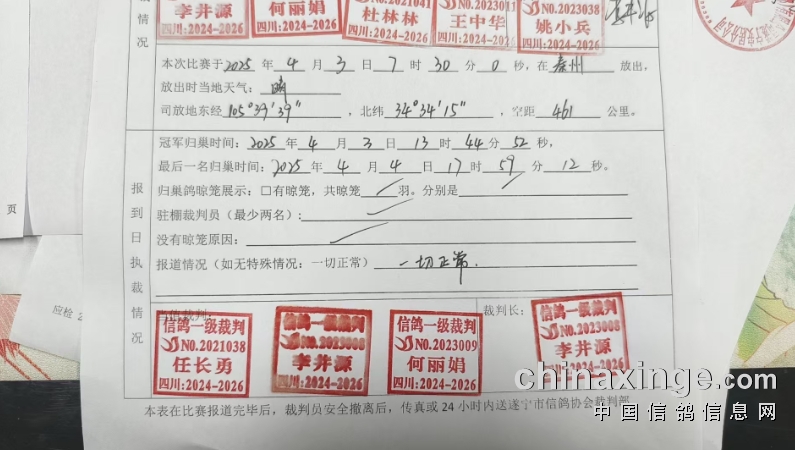 裁
情
况
李井源
四川:2024-2026
何丽娟
四川:2024-2026
No.2021041
杜林林
四川:2024-2026
No.2023011
王中华
四川:2024-2026
No.2023038
姚小兵
四川:2024-2026
本次比赛于2025年4月3日7时30分0秒,在秦州放出,
放出时当地天气:晴
司放地东经105°39′39″,北纬34°34′15″,空距461公里。
冠军归巢时间:2025年4月3日13时44分52秒,
最后一名归巢时间:2025年4月4日17时59分12秒。
归巢鸽晾笼展示:□有晾笼,共晾笼 羽。分别是
驻棚裁判员(最少两名):
没有晾笼原因:
报道情况(如无特殊情况:一切正常)一切正常.
报
到
日
执
裁
情
况
页
应检 2
当值裁判:
信鸽一级裁判
NO.2021038
任长勇
四川:2024-2026
信鸽一级裁判
No.2023008
李井源
四川:2024-2026
信鸽一级裁判
NO.2023009
何丽娟
四川:2024-2026
裁判长:
信鸽一级裁判
No.2023008
李井源
四川:2024-2026
本表在比赛报道完毕后,裁判员安全撤离后,传真或24小时内送遂宁市信鸽协会裁判部
chinaxinge.com
中国信鸽信息网